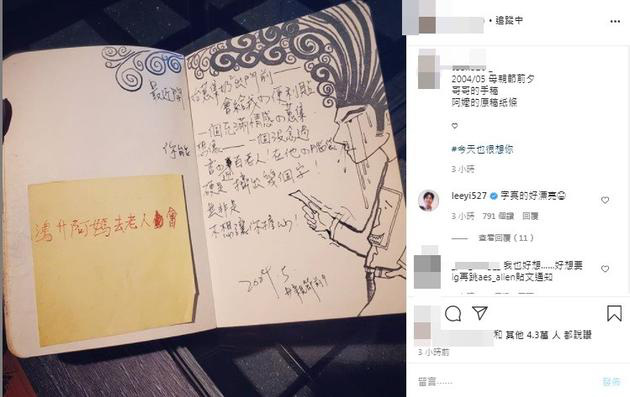 最近
你能
鴻升阿媽去老人會
出門前
會給我の便利貼
一個充滿情感の
想像 一個沒念過
老人!在他の
硬是擠出幾個字!
無非是
不想讓你擔心!
2004.5
母親節前夕
• 追蹤中
2004/05 母親節前夕
哥哥的手稿
阿嬤的原稿紙條
#今天也很想你
3 小時
leeyi527 字真的好漂亮
3 小時 791 個讚 回覆
查看回覆 (11)
我也好想......好想要
ig再跳aes_alien貼文通知
和 其他 4.3萬 人 都說讚
3 小時前
留言......
發佈